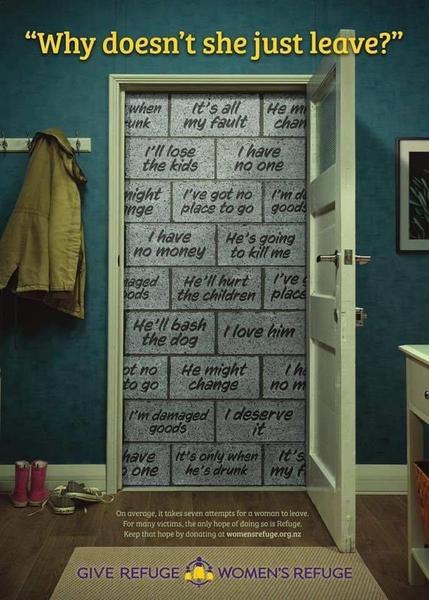 “Why doesn’t she just leave?”
when It's all He m
unk my fault chan
I'll lose I have
the kids no one
might I've got no I'm d
nge place to go goods
I have He's going
no money to kill me
aged He'll hurt I've g
ods the children place
He'll bash I love him
the dog
ot no He might I h
to go change no m
I'm damaged I deserve
goods it
have It's only when It's
one he's drunk my f
On average, it takes seven attempts for a woman to leave.
For many victims, the only hope of doing so is Refuge.
Keep that hope by donating at womensrefuge.org.nz
GIVE REFUGE WOMEN'S REFUGE